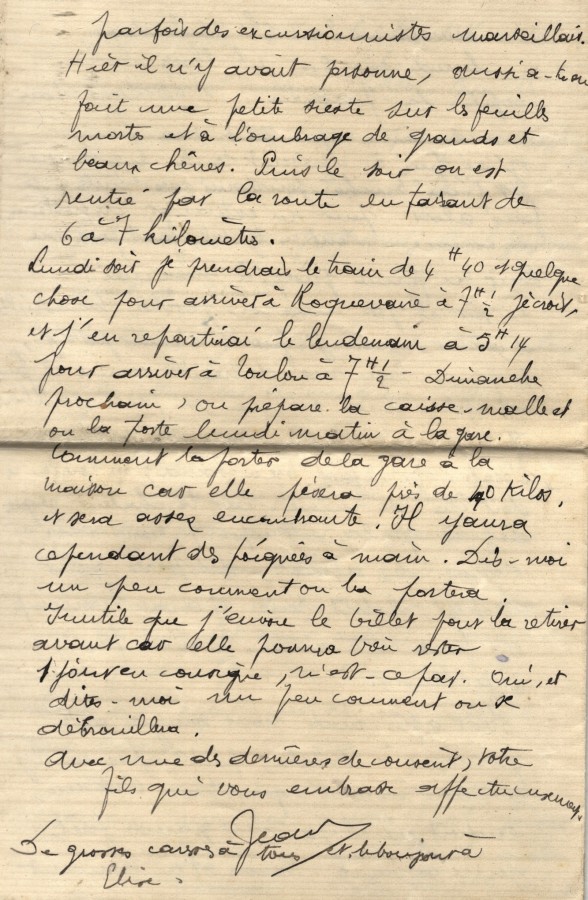 parfois des excursionnistes marseillais.
Hièr il n'y avait personne, aussi a-t-on
fait une petite sieste sur les feuilles
mortes et à l'ombrage de grands et
beaux chênes. Puis le soir on est
rentré par la route en faisant de
6 à 7 kilomètres.
Lundi soir je prendrais le train de 4 H 40 et quelque
chose pour arriver à Roquevaire à 7 H 1/2 je crois,
et j'en repartirai le lendemain à 5 H 14
pour arriver à Toulon à 7 H 1/2 - Dimanche
prochain, on prépare la caisse-malle et
on la porte lundi matin à la gare.
Comment la porter de la gare à la
maison car elle pèsera près de 40 kilos,
et sera assez encombrante. Il y aura
cependant des poignées à main. Dis-moi
un peu comment on la portera.
Inutile que j'envoie le billet pour la retirer
avant car elle pourra bien rester
1 jour en consigne, n'est-ce pas. Oui, et
dites-moi un peu comment on se
débrouillera.
Avec une des dernières de couvent, votre
fils qui vous embrasse affectueusement.
Jean
De grosses caresses à tous et le bonjour à
Elise.